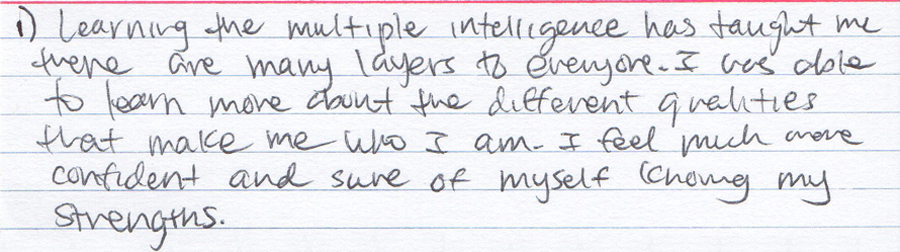 1) Learning the multiple intelligence has taught me
there are many layers to everyone. I was able
to learn more about the different qualities
that make me who I am. I feel much more
confident and sure of myself knowing my
strengths.